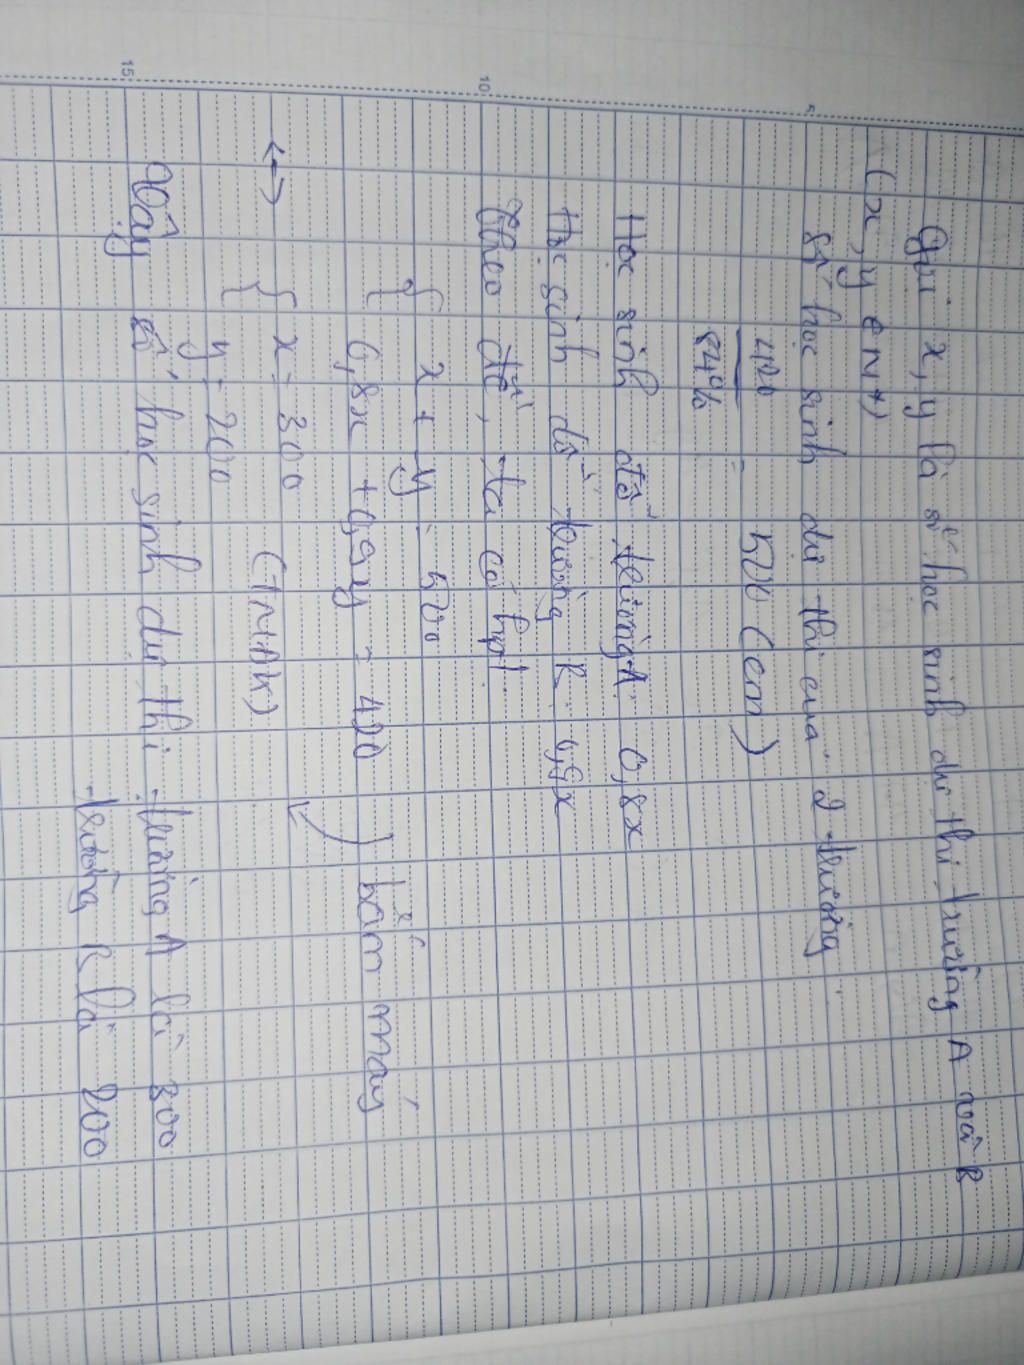 Gọi x, y là số học sinh dự thi trường A và B
(x, y ∈ N*)
Số học sinh dự thi của 2 trường:
420
84%
= 500 (em)
Học sinh đỗ trường A: 0,8x
Học sinh đỗ trường B: 0,9x
Theo đề, ta có hpt:
{ x + y = 500
0,8x + 0,9y = 420 } bấm máy
<-> { x = 300
y = 200 (TMĐK)
Vậy số học sinh dự thi - trường A là 300
- trường B là 200
5
10
15